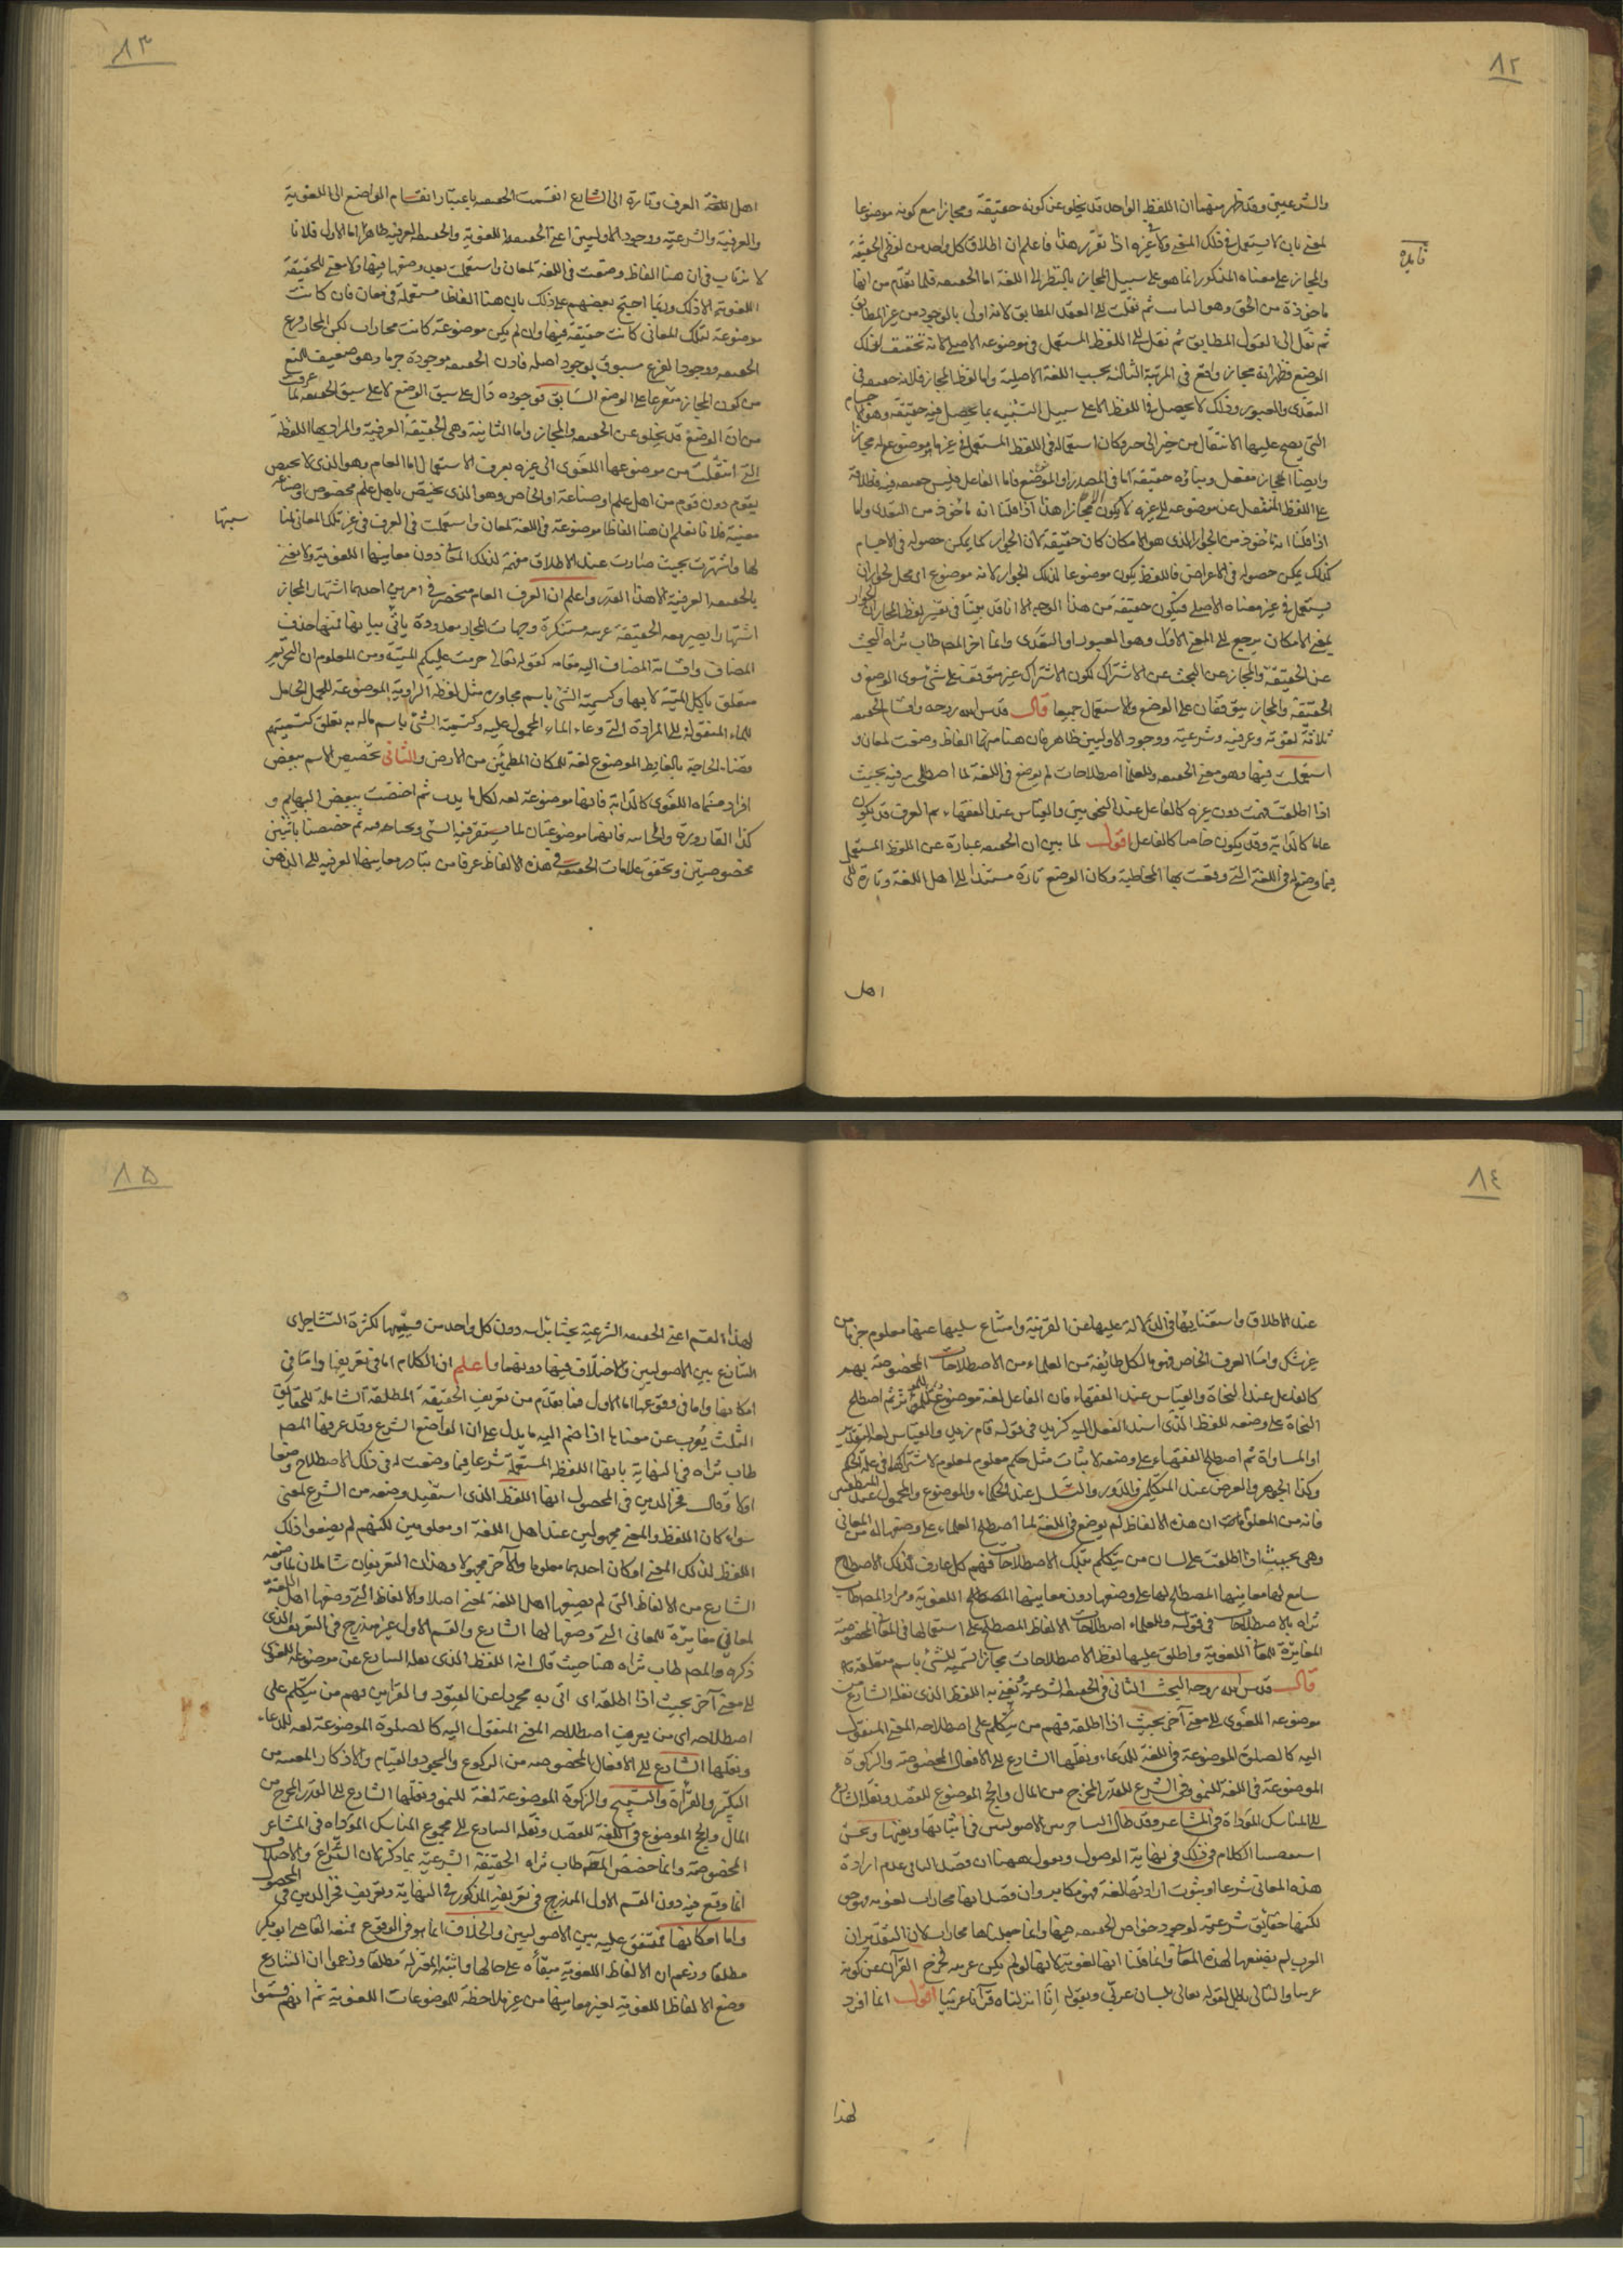 ٨٢
والشرعيين وقد ظهر منهما ان اللفظ الواحد قد يخلو عن كونه حقيقة ومجازا مع كونه موضوعا
لمعنى بان لا يستعمل في ذلك المعنى ولا غيره اذا تقرر هذا فاعلم ان اطلاق كل واحد من لفظي الحقيقة
والمجاز على معناه المذكور انما هو على سبيل المجاز بالنظر الى اللغة اما الحقيقة فلما تقدم من انها
فايده
ماخوذة من الحق وهو الثابت ثم نقلت الى العقد المطابق لانه اولى بالوجود من غير المطابق
ثم نقل الى القول المطابق ثم نقل الى اللفظ المستعمل في موضوعه الاصلي لانه تحقيق لذلك
الوضع فظهر انه مجاز واقع في المرتبة الثالثة بحسب اللغة الاصلية واما لفظ المجاز فلانه حقيقة في
التعدي والعبور وذلك لا يحصل في اللفظ الا على سبيل التشبيه بما يحصل فيه حقيقة وهو الاجسام
التي يصح عليها الانتقال من حيز الى حيز فكان استعماله في اللفظ المستعمل في غير ما هو موضوع له مجازا
وايضا المجاز مفعل وبناؤه حقيقة اما في المصدر او الموضع فاما الفاعل فليس حقيقة فيه فاطلاقه
على اللفظ المنتقل عن موضوعه الى غيره لا يكون الا مجازا هذا اذا قلنا انه ماخوذ من التعدي واما
اذا قلنا انه ماخوذ من الجواز الذي هو الامكان كان حقيقة لان الجواز كما يمكن حصوله في الاجسام
كذلك يمكن حصوله في الاعراض فاللفظ يكون موضوعا لذلك الجواز لانه موضوع اي محل لجواز ان
يستعمل في غير معناه الاصلي فيكون حقيقة من هذا الوجه الا انا قد بينا في تفسير لفظ المجاز ان الجواز
بمعنى الامكان يرجع الى المعنى الاول وهو العبور او التعدي وانما اخر المصنف طاب ثراه البحث
عن الحقيقة والمجاز عن البحث عن الاشتراك لكون الاشتراك غير متوقف على شئ سوى الوضع و
الحقيقة والمجاز يتوقفان على الوضع والاستعمال جميعا قال قدس الله روحه واقسام الحقيقة
ثلاثة لغوية وعرفية وشرعية ووجود الاوليين ظاهر فان هنا الفاظ وضعت لمعان و
استعملت فيها وهو معنى الحقيقة وللعلماء اصطلاحات لم يوضع في اللغة لما اصطلح فيه بحيث
اذا اطلقت فهمت دون غيره كالفاعل عند النحويين والقياس عند الفقهاء ثم العرف قد يكون
عاما كالدابة وقد يكون خاصا كالفاعل اقول لما بين ان الحقيقة عبارة عن اللفظ المستعمل
فيما وضع له في اللغة التي وقعت بها المخاطبة وكان الوضع تارة مستندا الى اهل اللغة وتارة الى
اهل
٨٣
اهل اللغة العرف وتارة الى الشارع انقسمت الحقيقة باعتبار انقسام الواضع الى اللغوية
والعرفية والشرعية ووجود الاوليين اعني الحقيقة اللغوية والحقيقة العرفية ظاهر اما الاول فلانا
لا نرتاب في ان هنا الفاظ وضعت في اللغة لمعان واستعملت بعد وضعها فيها ولا معنى للحقيقة
اللغوية الا ذلك وربما احتج بعضهم على ذلك بان هنا الفاظا مستعملة في معان فان كانت
موضوعة لتلك المعاني كانت حقيقة فيها وان لم يكن موضوعة كانت مجازات لكن المجاز فرع
الحقيقة ووجود الفرع مسبوق بوجود اصله فاذن الحقيقة موجودة جزما وهو ضعيف لمنع
من كون المجاز متفرعا على الوضع السابق فوجوده دال على سبق الوضع لا على سبق الحقيقة لما عرفت
من ان الوضع قد يخلو عن الحقيقة والمجاز واما الثانية وهي الحقيقة العرفية والمراد بها اللفظة
التي انتقلت من موضوعها اللغوي الى غيره بعرف الاستعمال اما العام وهو الذي لا يختص
بقوم دون قوم من اهل علم او صناعة او الخاص وهو الذي يختص باهل علم مخصوص او صناعة
معينة فلانا نعلم ان هنا الفاظا موضوعة في اللغة لمعان واستعملت في العرف في غير تلك المعاني لمناسبتها
لها واشتهرت بحيث صارت عند الاطلاق مفهمة لذلك المعاني دون معانيها اللغوية ولا نعني
بالحقيقة العرفية الا هذا القدر واعلم ان العرف العام منحصر في امرين احدهما اشتهار المجاز
اشتهارا يصير معه الحقيقة مستنكرة وجهات المجاز معدودة ياتي بيانها فمنها حذف
المضاف واقامة المضاف اليه مقامه كقوله تعالى حرمت عليكم الميتة ومن المعلوم ان التحريم
متعلق باكل الميتة لا بها وكتسمية الشئ باسم مجاوره مثل لفظة الراوية الموضوعة للجمل الحامل
للماء المنقولة الى المزادة التي وعاء الماء المحمول عليه وكتسمية الشئ باسم ماله به تعلق كتسميتهم
قضاء الحاجة بالغايط الموضوع لغة للمكان المطمئن من الارض والثاني تخصيص الاسم ببعض
افراد مسماه اللغوي كالدابة فانها موضوعة لغة لكل ما يدب ثم اختصت ببعض البهايم و
كذا القارورة والخابية فانهما موضوعتان لما يستقر فيه الشئ ويخبأ فيه ثم خصصتا بآنيتين
مخصوصتين وتحقق علامات الحقيقة في هذه الالفاظ عرفا من تبادر معانيها العرفية الى الذهن
٨٤
عند الاطلاق واستغنائها في الدلالة عليها عن القرينة وامتناع سلبها عنها معلوم جزما من
غير شك واما العرف الخاص فهو ما لكل طايفة من العلماء من الاصطلاحات المخصوصة بهم
كالفاعل عند النحاة والقياس عند الفقهاء فان الفاعل لغة موضوع للمؤثر ثم اصطلح
النحاة على وضعه للفظ الذي اسند الفعل اليه كزيد في قوله قام زيد والقياس لغة التقدير
او المساواة ثم اصطلح الفقهاء على وضعه لاثبات مثل حكم معلوم لمعلوم لاشتراكهما في علة الحكم
وكذا الجوهر والعرض عند المتكلم والدور والتسلسل عند الحكماء والموضوع والمحمول عند المنطقيين
فانه من المعلوم ان هذه الالفاظ لم يوضع في اللغة لما اصطلح العلماء على وضعها له من المعاني
وهي بحيث اذا اطلقت على لسان من يتكلم بتلك الاصطلاحات فهم كل عارف لذلك الاصطلاح
سامع لها معانيها المصطلح لها على وضعها دون معانيها اللغوية ومراد المصنف طاب
ثراه بالاصطلاحات في قوله وللعلماء اصطلاحات الالفاظ المصطلح على استعمالها في المعاني المخصوصة
المغايرة للمعاني اللغوية واطلق عليها لفظ الاصطلاحات مجازا تسمية للشئ باسم متعلقه
قال قدس الله روحه البحث الثاني في الحقيقة الشرعية نعني به اللفظ الذي نقله الشارع من
موضوعه اللغوي الى معنى آخر بحيث اذا اطلقه فهم من يتكلم على اصطلاحه المعنى المنقول
اليه كالصلوة الموضوعة في اللغة للدعاء ونقلها الشارع الى الافعال المخصوصة والزكوة
الموضوعة في اللغة للنمو وفي الشرع للقدر المخرج من المال والحج الموضوع للقصد ونقله الشارع
الى المناسك المؤداة في المشاعر وقد طال التشاجر بين الاصوليين في اثباتها ونفيها ونحن
استقصينا الكلام في ذلك في نهاية الوصول ونقول ههنا ان قصد النافي عدم ارادة
هذه المعاني شرعا او ثبوت ارادتها لغة فهو مكابر وان قصد انها مجازات لغوية فهو حق
لكنها حقايق شرعية لوجود خواص الحقيقة فيها وانما جعلناها مجازات لان التقدير ان
العرب لم يضعها لهذه المعاني وانما قلنا انها لغوية لانها لو لم يكن عربية لخرج القرآن عن كونه
عربيا والتالي باطل لقوله تعالى بلسان عربي وبقوله انا انزلناه قرآنا عربيا اقول انما افرد
لهذا
٨٥
لهذا القسم اعني الحقيقة الشرعية بحثا براسه دون كل واحد من قسيميها لكثرة التشاجر اي
التنازع بين الاصوليين والاختلاف فيها دونهما واعلم ان الكلام اما في تعريفها واما في
امكانها واما في وقوعها اما الاول فما تقدم من تعريف الحقيقة المطلقة الشاملة للحقايق
الثلث يعرب عن معناها اذا ضم اليه ما يدل على ان الواضع الشرع وقد عرفها المصنف
طاب ثراه في النهاية بانها اللفظة المستعملة شرعا فيما وضعت له في ذلك الاصطلاح وضعا
اولا وقال فخر الدين في المحصول انها اللفظ الذي استفيد وضعه من الشرع لمعنى
سواء كان اللفظ والمعنى مجهولين عند اهل اللغة او معلومين لكنهم لم يضعوا ذلك
اللفظ لذلك المعنى او كان احدهما معلوما والآخر مجهولا وهذان التعريفان شاملان لما وضعه
الشارع من الالفاظ التي لم يضعها اهل اللغة لمعنى اصلا والالفاظ التي وضعها اهل اللغة
لمعاني مغايرة للمعاني التي وضعها لها الشارع والقسم الاول غير مندرج في التعريف الذي
ذكره المصنف طاب ثراه هنا حيث قال انها اللفظ الذي نقله الشارع عن موضوعه اللغوي
الى معنى آخر بحيث اذا اطلقه اي اتى به مجردا عن القيود والقراين فهم من يتكلم على
اصطلاحه اي من يعرف اصطلاحه المعنى المنقول اليه كالصلوة الموضوعة لغة للدعاء
ونقلها الشارع الى الافعال المخصوصة من الركوع والسجود والقيام والاذكار المعينة من
التكبير والقرأة والتسبيح والزكوة الموضوعة لغة للنمو ونقلها الشارع الى القدر المخرج من
المال والحج الموضوع في اللغة للقصد ونقله الشارع الى مجموع المناسك المؤداه في المشاعر
المخصوصة وانما خصص المصنف طاب ثراه الحقيقة الشرعية بما ذكر لان النزاع والاختلاف
انما وقع فيه دون القسم الاول المندرج في تعريفه المذكور في النهاية وتعريف فخر الدين في المحصول
واما امكانها فمتفق عليه بين الاصوليين والخلاف انما هو في الوقوع فمنعه القاضي ابو بكر
مطلقا وزعم ان الالفاظ اللغوية مبقاة على حالها واثبته المعتزلة مطلقا وزعموا ان الشارع
وضع الالفاظ اللغوية لغير معانيها من غير ملاحظة للموضوعات اللغوية ثم انهم قسموا